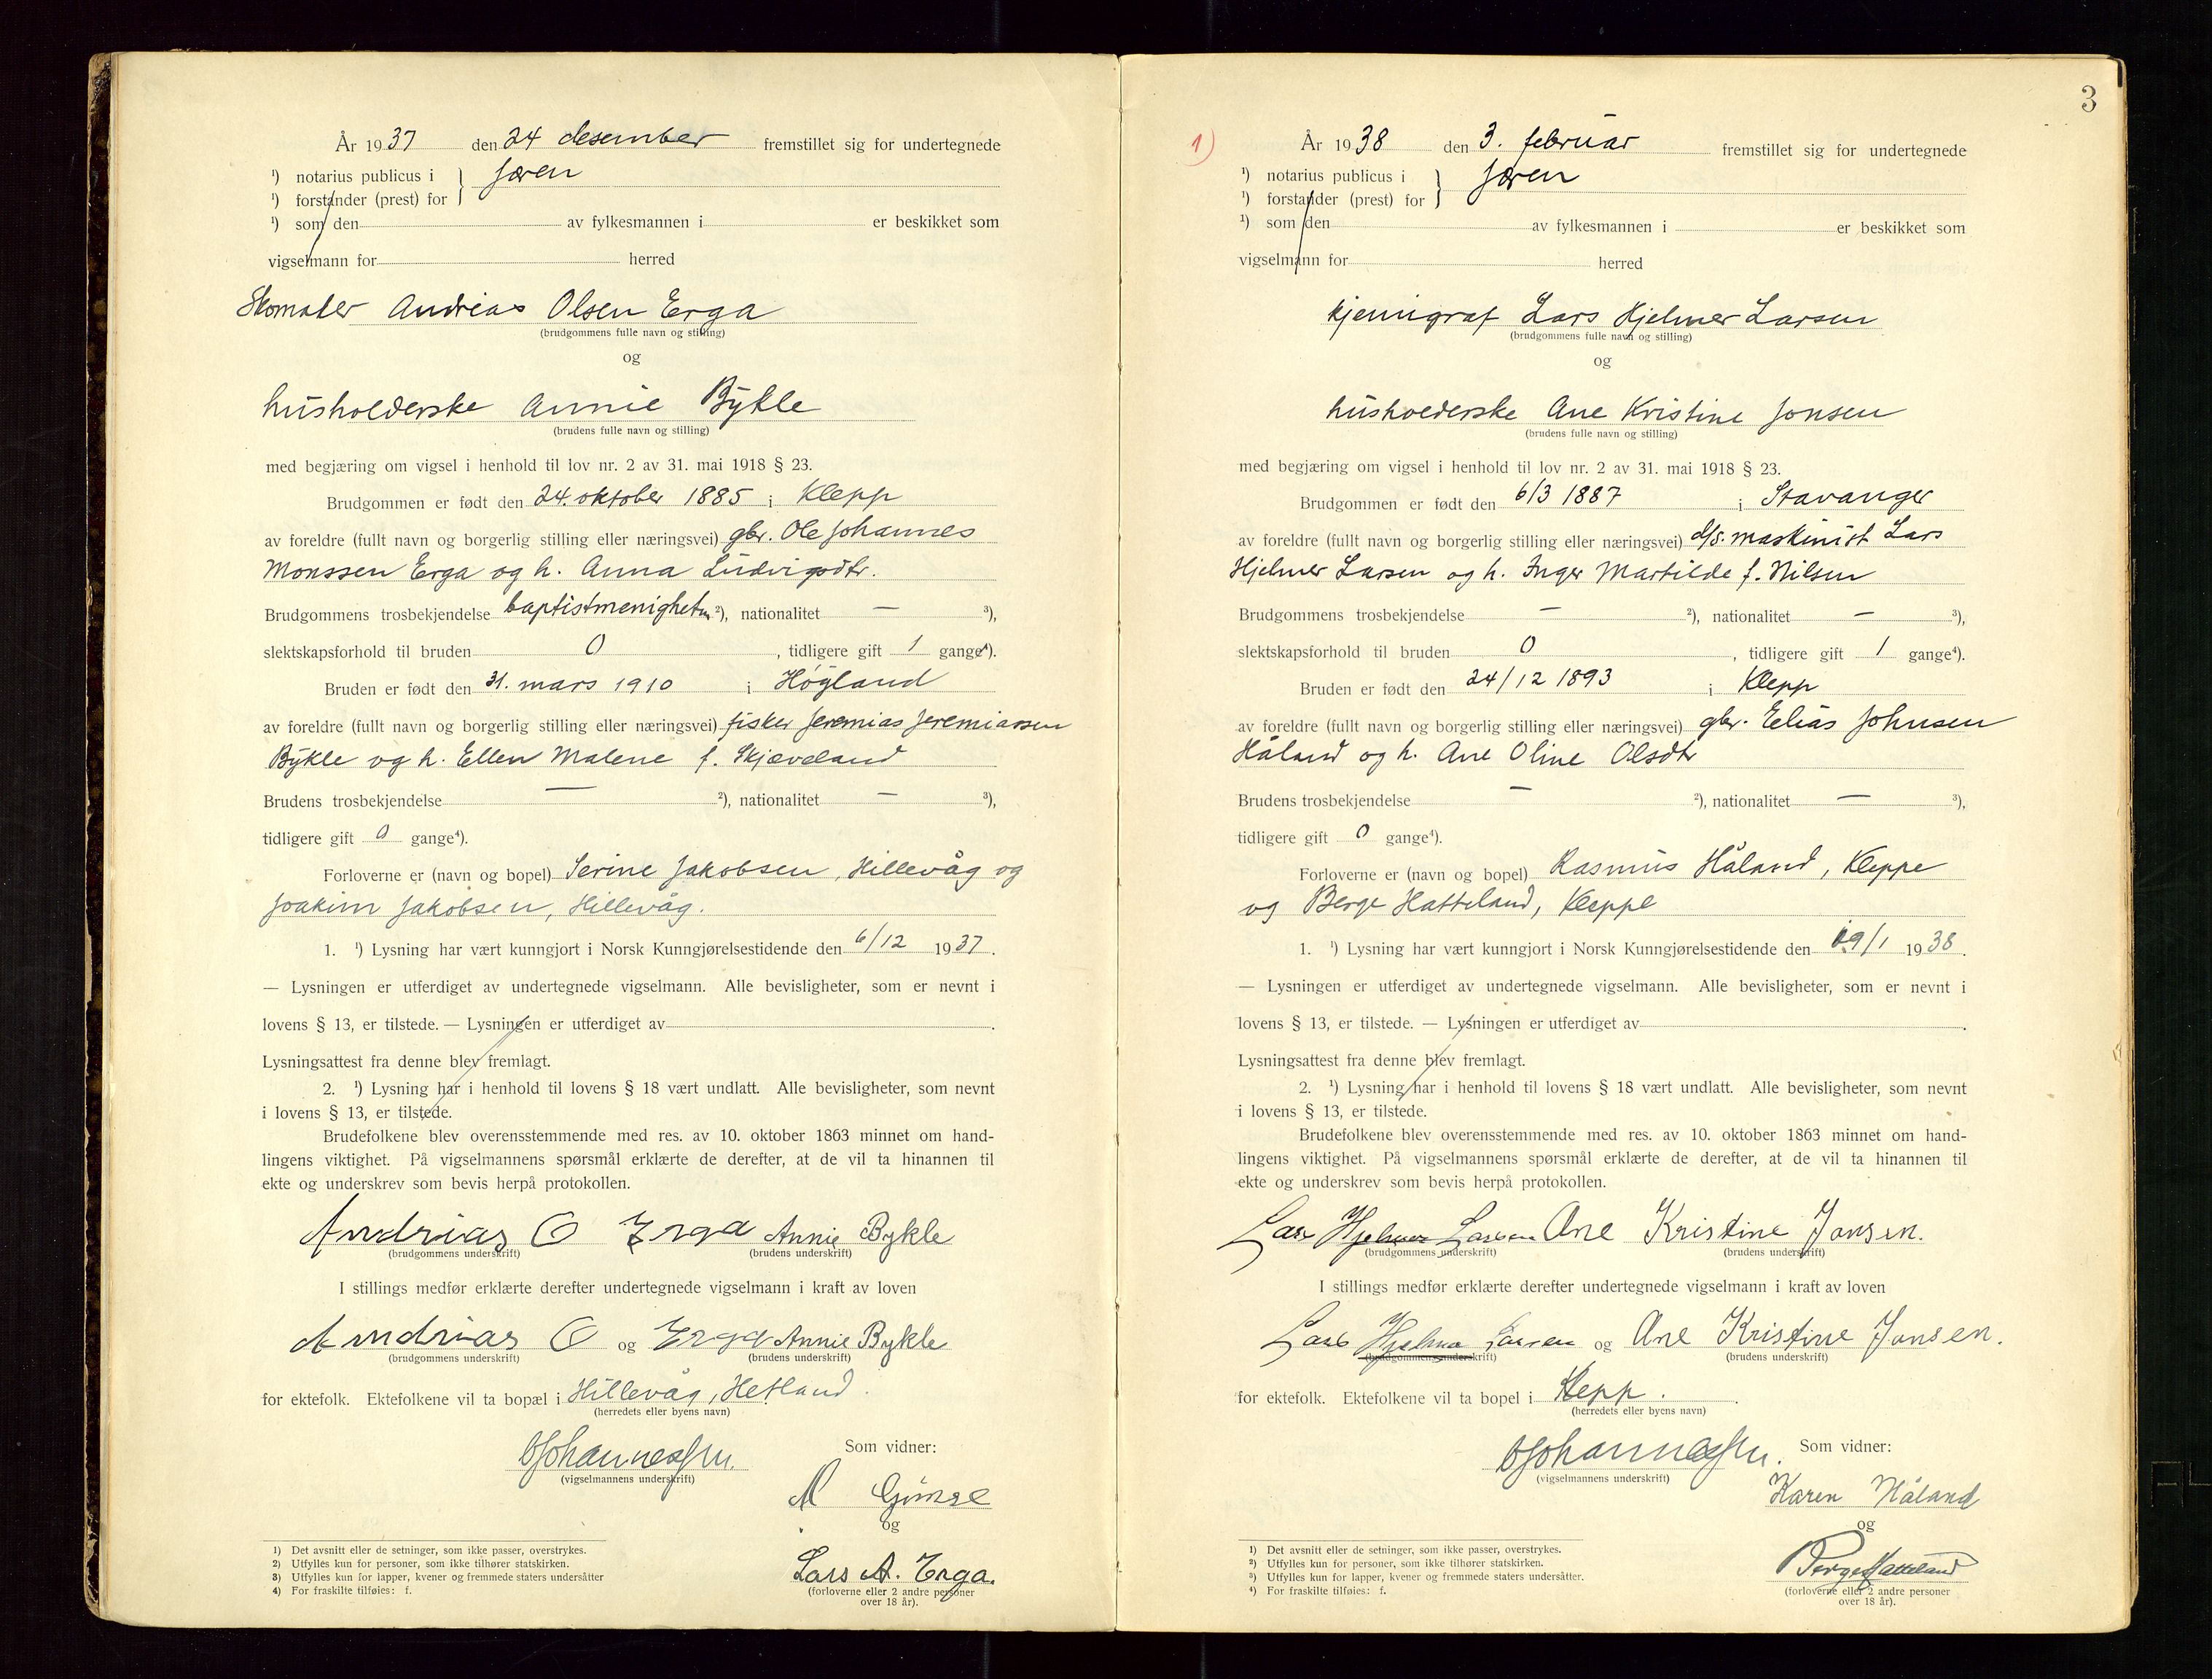 År 1937 den 24 desember fremstillet sig for undertegnede
¹) notarius publicus i } Jæren
¹) forstander (prest) for
¹) som den av fylkesmannen i er beskikket som
vigselmann for herred
Skomaker Andreas Olsen Erga
(brudgommens fulle navn og stilling)
og
husholderske Annie Bykle
(brudens fulle navn og stilling)
med begjæring om vigsel i henhold til lov nr. 2 av 31. mai 1918 § 23.
Brudgommen er født den 24. oktober 1885 i Klepp
av foreldre (fullt navn og borgerlig stilling eller næringsvei) gbr. Ole Johannes
Monssen Erga og h. Anna Ludvigsdtr.
Brudgommens trosbekjendelse baptistmenigheten ²), nationalitet — ³),
slektskapsforhold til bruden 0, tidligere gift 1 gange⁴).
Bruden er født den 31. mars 1910 i Høgland
av foreldre (fullt navn og borgerlig stilling eller næringsvei) fisker Jeremias Jeremiassen
Bykle og h. Ellen Malene f. Skjæveland
Brudens trosbekjendelse — ²), nationalitet — ³),
tidligere gift 0 gange⁴).
Forloverne er (navn og bopel) Serine Jakobsen, Hillevåg og
Joakim Jakobsen, Hillevåg.
1. ¹) Lysning har vært kunngjort i Norsk Kunngjørelsestidende den 6/12 1937.
— Lysningen er utferdiget av undertegnede vigselmann. Alle bevisligheter, som er nevnt i
lovens § 13, er tilstede. — Lysningen er utferdiget av .
Lysningsattest fra denne blev fremlagt.
2. ¹) Lysning har i henhold til lovens § 18 vært undlatt. Alle bevisligheter, som nevnt
i lovens § 13, er tilstede.
Brudefolkene blev overensstemmende med res. av 10. oktober 1863 minnet om hand-
lingens viktighet. På vigselmannens spørsmål erklærte de derefter, at de vil ta hinannen til
ekte og underskrev som bevis herpå protokollen.
Andrias O Erga Annie Bykle
(brudgommens underskrift) (brudens underskrift)
I stillings medfør erklærte derefter undertegnede vigselmann i kraft av loven
Andrias O og Erga Annie Bykle
(brudgommens underskrift) (brudens underskrift)
for ektefolk. Ektefolkene vil ta bopæl i Hillevåg, Hetland.
(herredets eller byens navn)
Johannessen. Som vidner:
(vigselmannens underskrift)
og
Lars A. Erga.
(forloverne eller 2 andre personer
over 18 år).
1) Det avsnitt eller de setninger, som ikke passer, overstrykes.
2) Utfylles kun for personer, som ikke tilhører statskirken.
3) Utfylles kun for lapper, kvener og fremmede staters undersåtter
4) For fraskilte tilføies: f.
3
1)
År 1938 den 3. februar fremstillet sig for undertegnede
¹) notarius publicus i } Jæren
¹) forstander (prest) for
¹) som den av fylkesmannen i er beskikket som
vigselmann for herred
kjemigraf Lars Hjelmer Larsen
(brudgommens fulle navn og stilling)
og
husholderske Ane Kristine Jonsen
(brudens fulle navn og stilling)
med begjæring om vigsel i henhold til lov nr. 2 av 31. mai 1918 § 23.
Brudgommen er født den 6/3 1887 i Stavanger
av foreldre (fullt navn og borgerlig stilling eller næringsvei) d/s. maskinist Lars
Hjelmer Larsen og h. Inger Martilde f. Nilsen
Brudgommens trosbekjendelse — ²), nationalitet — ³),
slektskapsforhold til bruden 0, tidligere gift 1 gange⁴).
Bruden er født den 24/12 1893 i Klepp
av foreldre (fullt navn og borgerlig stilling eller næringsvei) gbr. Elias Johnsen
Håland og h. Ane Oline Olsdtr
Brudens trosbekjendelse — ²), nationalitet — ³),
tidligere gift 0 gange⁴).
Forloverne er (navn og bopel) Rasmus Håland, Kleppe
og Berge Hatteland, Kleppe
1. ¹) Lysning har vært kunngjort i Norsk Kunngjørelsestidende den 19/1 1938.
— Lysningen er utferdiget av undertegnede vigselmann. Alle bevisligheter, som er nevnt i
lovens § 13, er tilstede. — Lysningen er utferdiget av .
Lysningsattest fra denne blev fremlagt.
2. ¹) Lysning har i henhold til lovens § 18 vært undlatt. Alle bevisligheter, som nevnt
i lovens § 13, er tilstede.
Brudefolkene blev overensstemmende med res. av 10. oktober 1863 minnet om hand-
lingens viktighet. På vigselmannens spørsmål erklærte de derefter, at de vil ta hinannen til
ekte og underskrev som bevis herpå protokollen.
Lars Hjelmer Larsen Ane Kristine Jonsen.
(brudgommens underskrift) (brudens underskrift)
I stillings medfør erklærte derefter undertegnede vigselmann i kraft av loven
Lars Hjelmer Larsen og Ane Kristine Jonsen.
(brudgommens underskrift) (brudens underskrift)
for ektefolk. Ektefolkene vil ta bopel i Klepp.
(herredets eller byens navn)
Johannessen. Som vidner:
(vigselmannens underskrift)
Karen Håland
og
Berge Hatteland
(forloverne eller 2 andre personer
over 18 år).
1) Det avsnitt eller de setninger, som ikke passer, overstrykes.
2) Utfylles kun for personer, som ikke tilhører statskirken.
3) Utfylles kun for lapper, kvener og fremmede staters undersåtter.
4) For fraskilte tilføies: f.